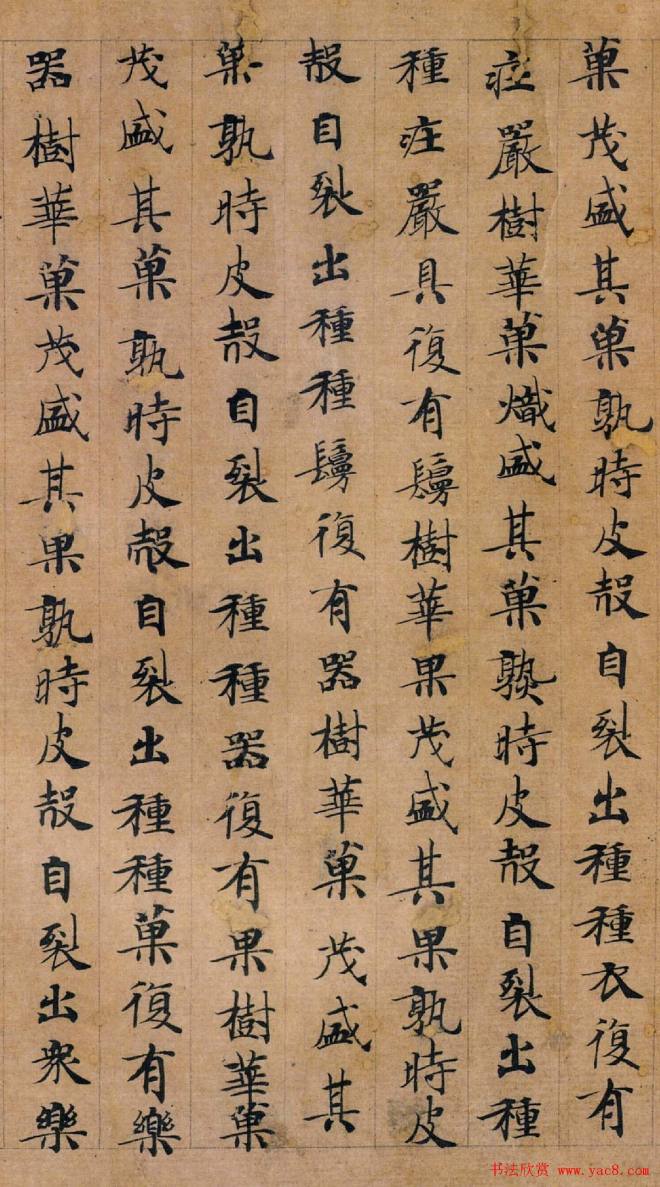 菓茂盛其菓孰時皮殻自裂出種種衣復有
庄嚴樹華菓熾盛其菓熟時皮殻自裂出種
種庄嚴具復有鬘樹華果茂盛其果孰時皮
殻自裂出種種鬘復有器樹華菓茂盛其
菓孰時皮殻自裂出種種器復有果樹華菓
茂盛其菓孰時皮殻自裂出種種菓復有樂
器樹華菓茂盛其果孰時皮殻自裂出衆樂
书法欣赏 www.yac8.com